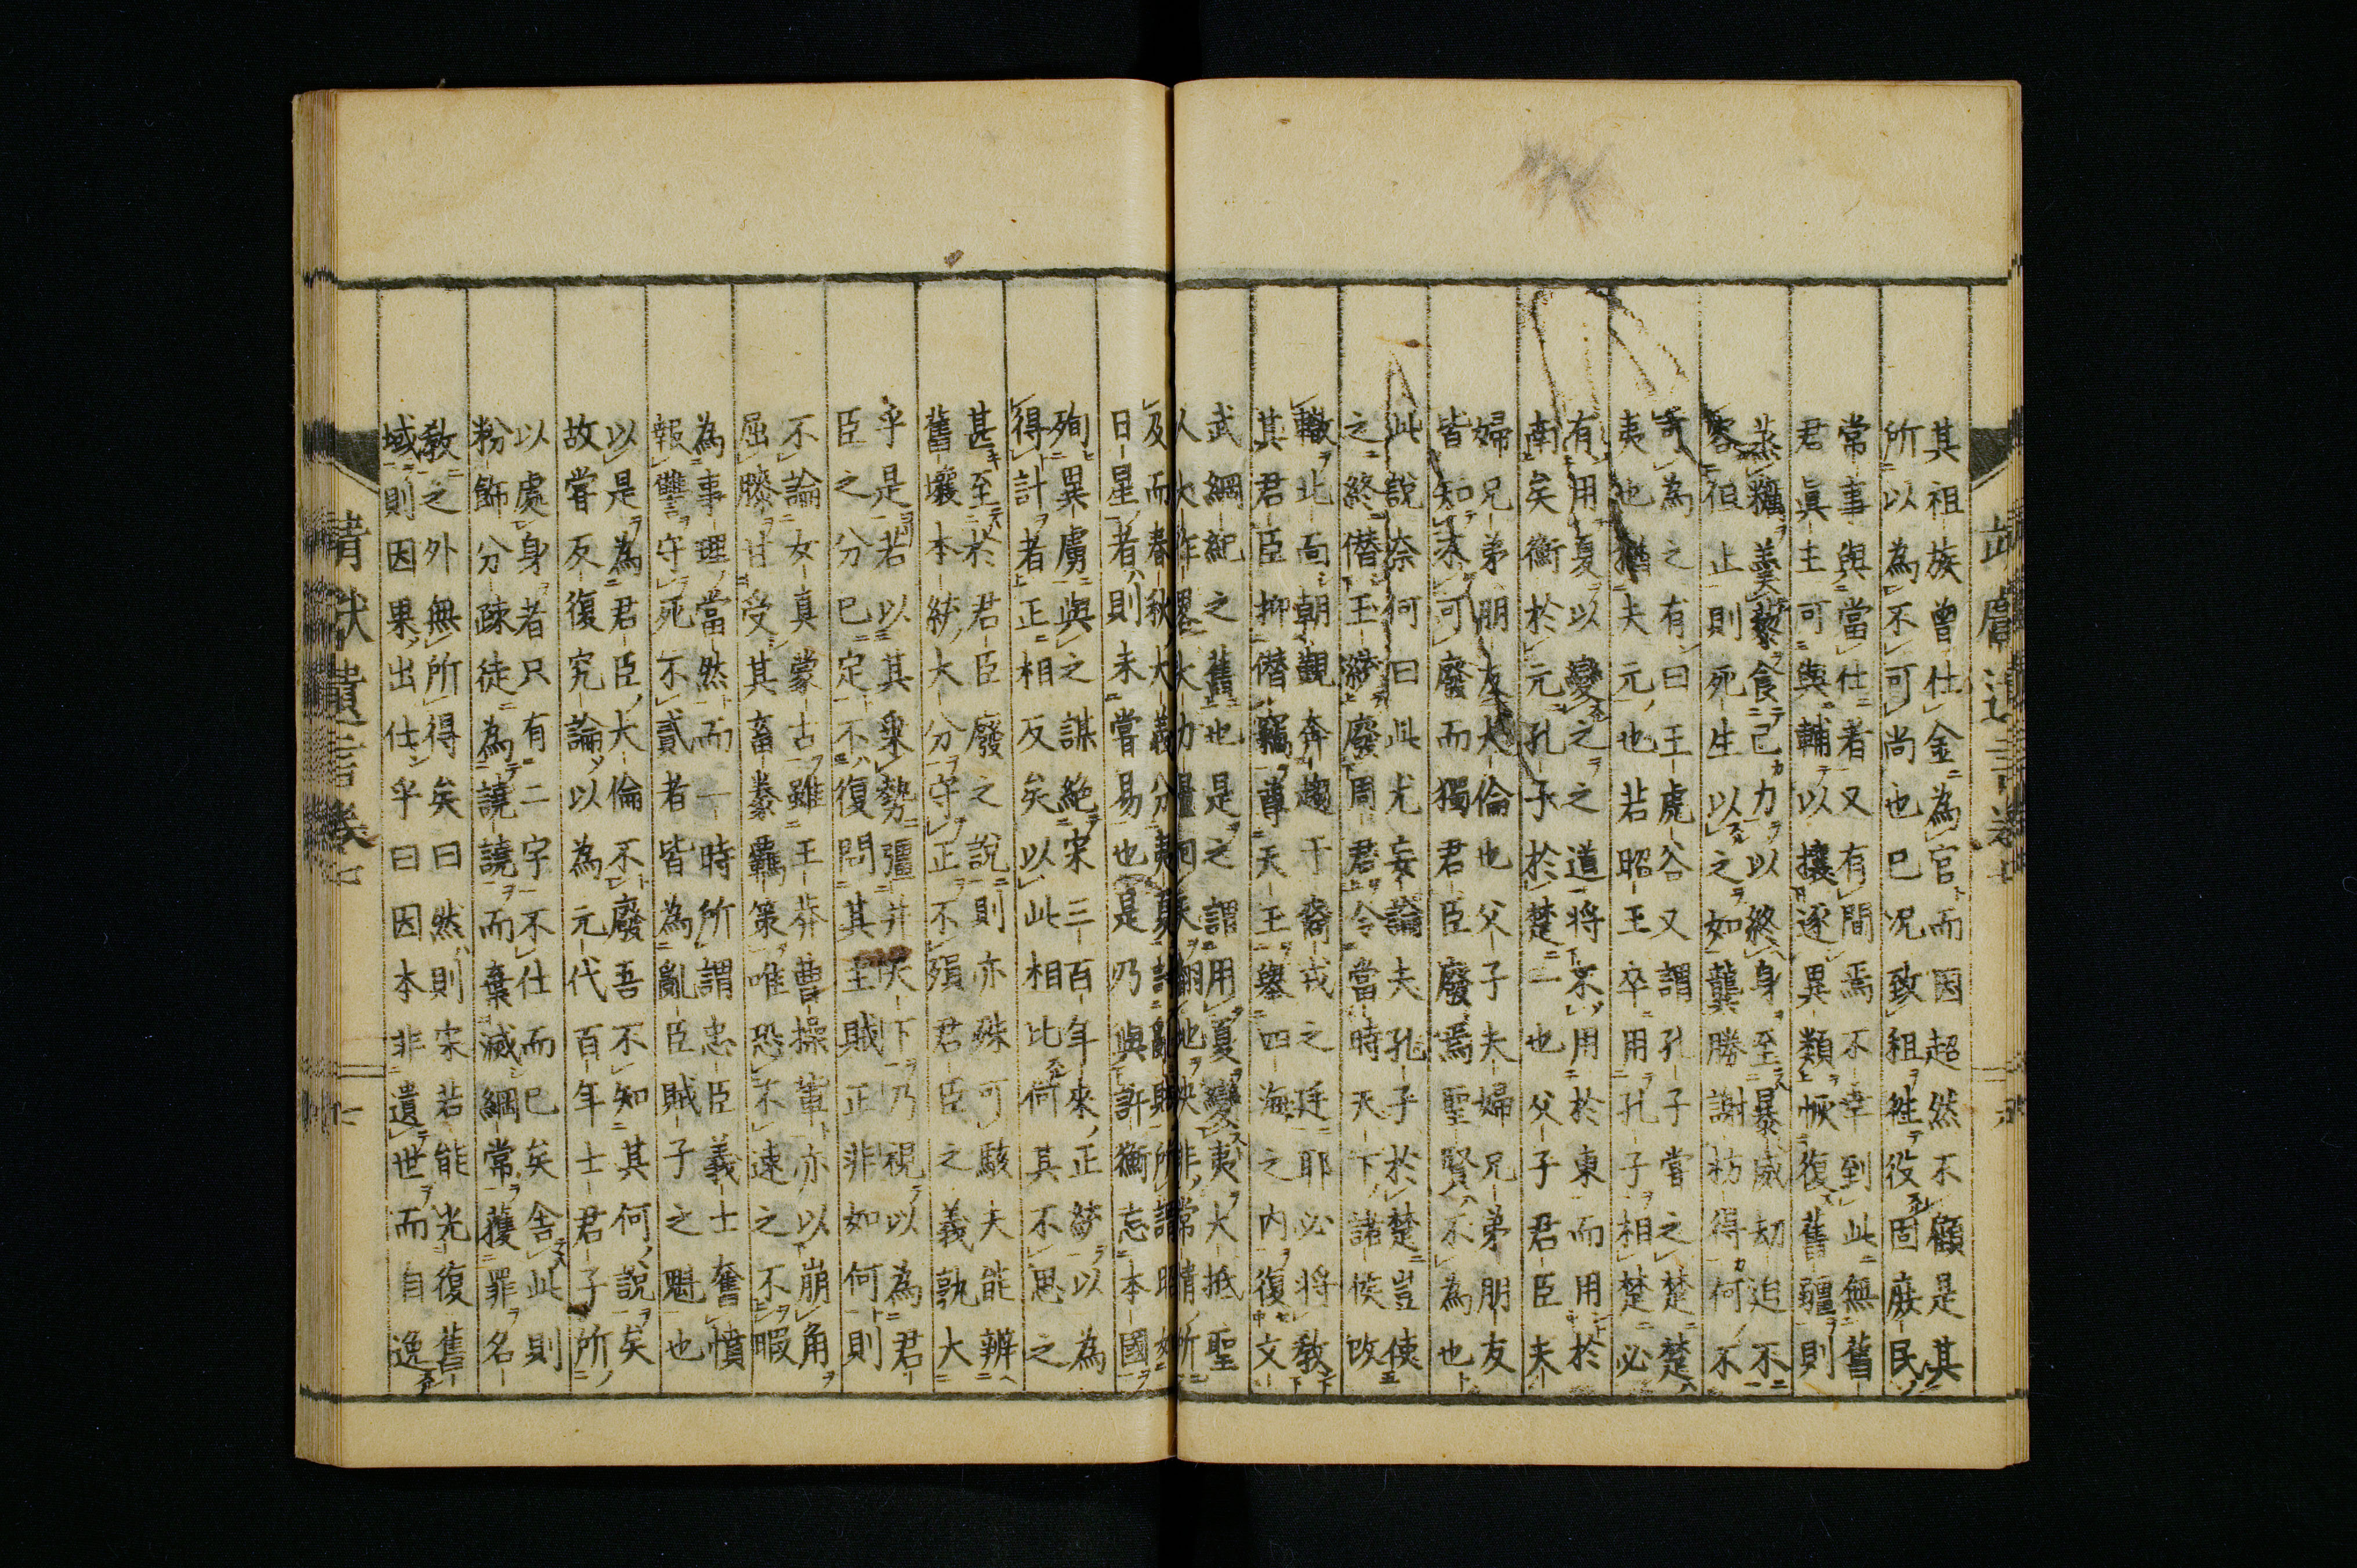 其祖族曾仕金為官而因超然不顧是其
所以為不可尚也已況致租徃役固廢民
常事與當仕者又有間焉不幸到此無舊
君眞主可與輔以攘逐異類恢復舊疆則
蒸糲羹藜食己力以終身至暴威劫迫不
容但止則死生以之如龔勝謝枋得何不
可為之有曰王處谷又謂孔子嘗之楚楚
夷也猶夫元也若昭王卒用孔子相楚必
有用夏以變之之道將不用於東而用於
南矣衡於元孔子於楚二也父子君臣夫
婦兄弟朋友大倫也父子夫婦兄弟朋友
皆知不可廢而獨君臣廢焉聖賢不為也
此說奈何曰此尤妄論夫孔子於楚豈使
之終僭王號廢周君令當時天下諸侯改
轍北面朝覲奔趨于裔戎之廷耶必將教
其君臣抑僭竊尊天王擧四海之內復文
武綱紀之舊也是之謂用夏變夷大抵聖
人大作畧大力量回天翻地決非常情所
及而春秋大義分夷夏討亂賊所謂昭如
日星者則未嘗易也是乃與許衡忘本國
殉異虜與之謀絕宋三百年來正統以為
得計者正相反矣以此相比何其不思之
甚至於君臣廢之說則亦殊可駭夫能辨
舊壤本統大分守正不殞君臣之義孰大
乎是若以其衆勢彊幷天下乃視以為君
臣之分已定不復問其主賊正非如何則
不論女真蒙古雖王莽曹操輩亦以崩角
屈膝甘受其畜豢羈策唯恐不速之不暇
為事理當然而一時所謂忠臣義士奮憤
報讐守死不貳者皆為亂臣賊子之魁也
以是為君臣大倫不廢吾不知其何說矣
故嘗反復究論以為元代百年士君子所
以處身者只有二字不仕而已矣舍此則
粉飾分疎徒為譊譊而棄滅綱常獲罪名
教之外無所得矣曰然則宋若能光復舊
域則因果出仕乎曰因本非遺世而自逸